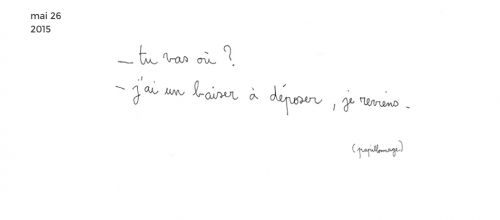 mai 26
2015
– tu vas où ?
– j'ai un baiser à déposer, je reviens.
(papillonnage)